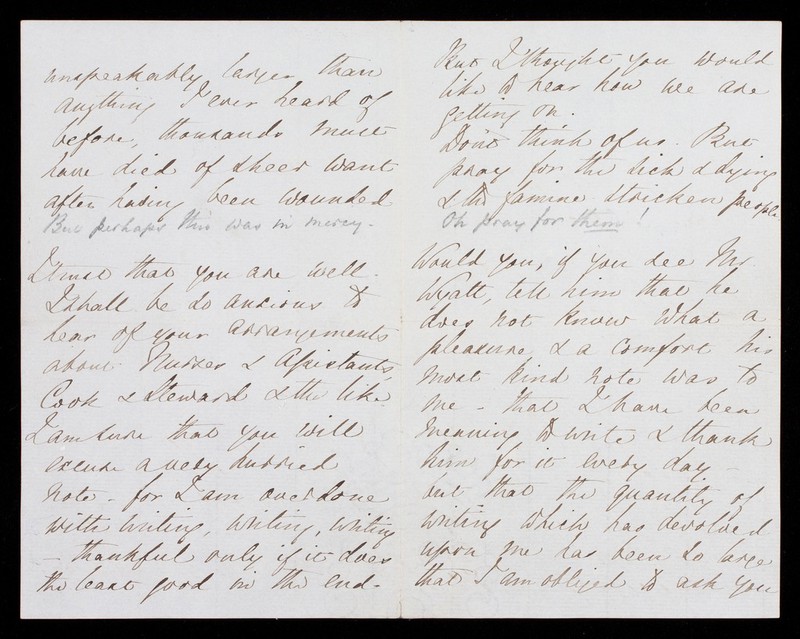 unspeakably larger than
anything I ever heard of
before, thousands must
have died of sheer want
after having been wounded
But perhaps this was in mercy.
I trust that you are well.
I shall be so anxious to
hear of your arrangements
about Nurses & Assistants,
Cook & Steward & the like.
I am sure that you will
excuse a very hurried
note - for I am overdone
with writing, writing, writing
- thankful only if it does
the least good in the end.
But I thought you would
like to hear how we are
getting on.
Don't think of us. But
pray for the sick & dying
& the famine stricken people
Oh pray for them!
Would you, if you see Mr.
Wyatt, tell him that he
does not know what a
pleasure, & a comfort his
most kind note was to
me - that I have been
meaning to write & thank
him for it every day -
but that the quantity of
writing which has devolved
upon me has been so large
that I am obliged to ask you